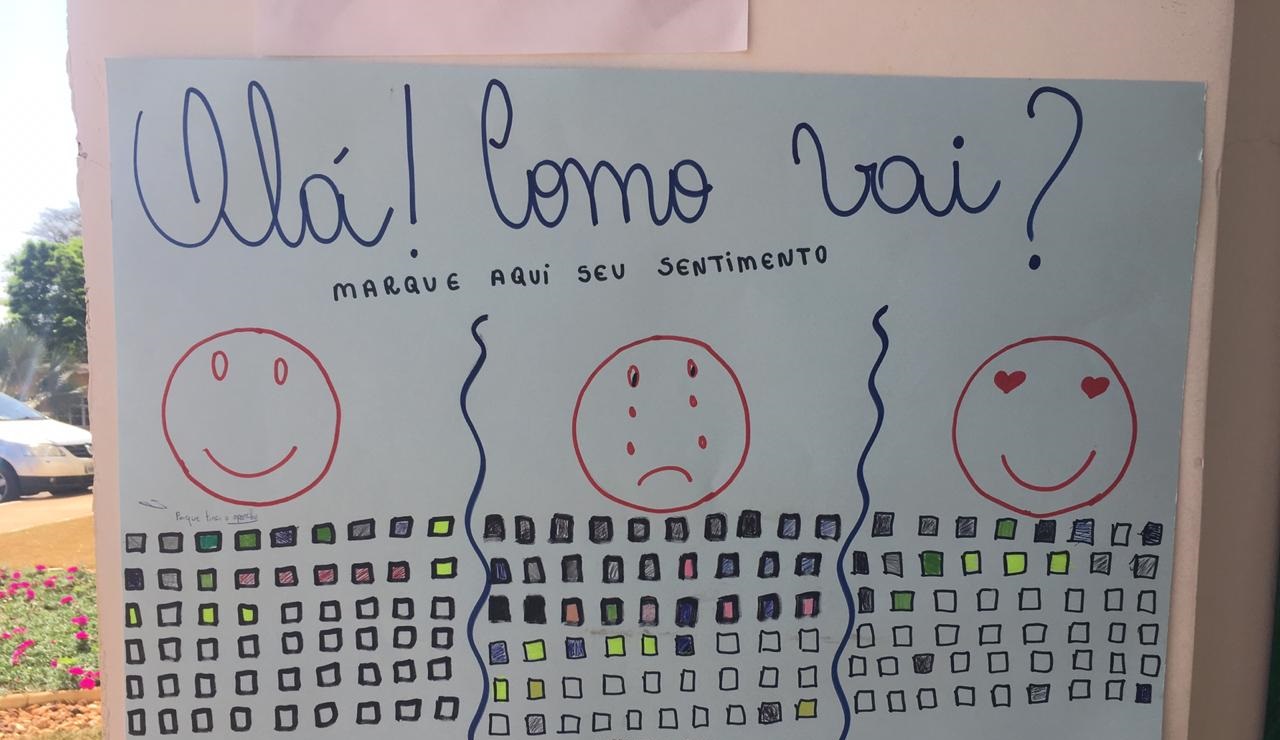 Olá! Como vai?
MARQUE AQUI SEU SENTIMENTO
Porque tirei o aparelho